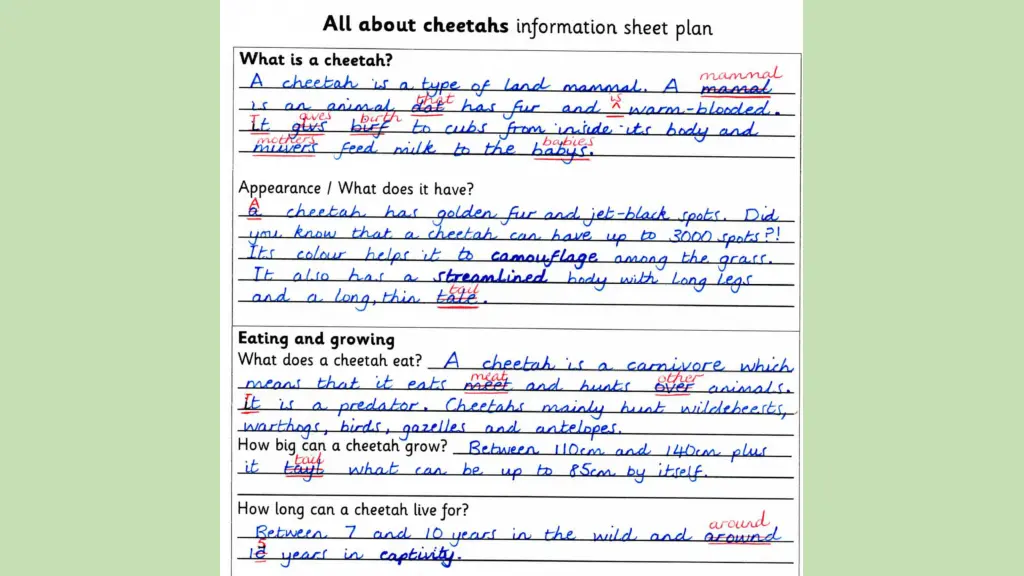 All about cheetahs information sheet plan
What is a cheetah?
mammal
A cheetah is a type of land mammal. A mamal
that is
is an animal dat has fur and ^ warm-blooded.
gives birth
It givs birf to cubs from inside its body and
mothers babies
muvers feed milk to the babys.
Appearance / What does it have?
A
a cheetah has golden fur and jet-black spots. Did
you know that a cheetah can have up to 3000 spots?!
Its colour helps it to camouflage among the grass.
It also has a streamlined body with long legs
tail
and a long, thin tale.
Eating and growing
What does a cheetah eat? A cheetah is a carnivore which
meat other
means that it eats meet and hunts over animals.
It is a predator. Cheetahs mainly hunt wildebeests,
warthogs, birds, gazelles and antelopes.
How big can a cheetah grow? Between 110cm and 140cm plus
tail
it tayl what can be up to 85cm by itself.
How long can a cheetah live for?
around
Between 7 and 10 years in the wild and arownd
5
12 years in captivity.